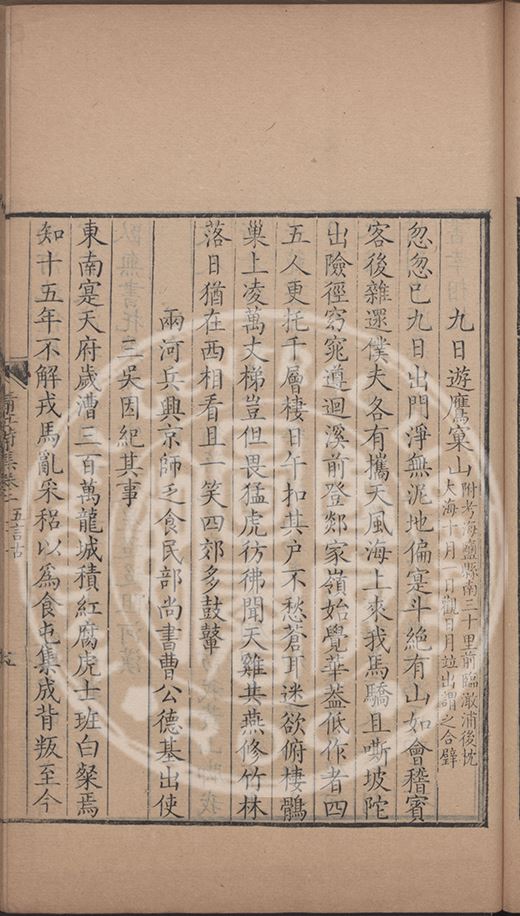 九日遊鷹窠山附考海鹽縣南三十里前臨澉浦後枕
大海十月一日觀日月竝出謂之合壁
忽忽巳九日出門淨無泥地偏寔斗絶有山如會稽賓
客後雜遝僕夫各有攜天風海上來我馬驕且嘶坡陀
出險徑窈窕遵迴溪前登郯家嶺始覺華葢低作者四
五人更托千層棲日午扣其户不愁蒼耳迷欲俯棲鶻
巢上凌萬丈梯豈但畏猛虎彷彿聞天雞其燕修竹林
落日猶在西相看且一笑四郊多鼓鼙
兩河兵興京師乏食民部尚書曹公德基出使
三吳因紀其事
東南寔天府歲漕三百萬龍城積紅腐虎士班白粲焉
知十五年不解戎馬亂采稆以爲食屯集成背叛至今
五言古